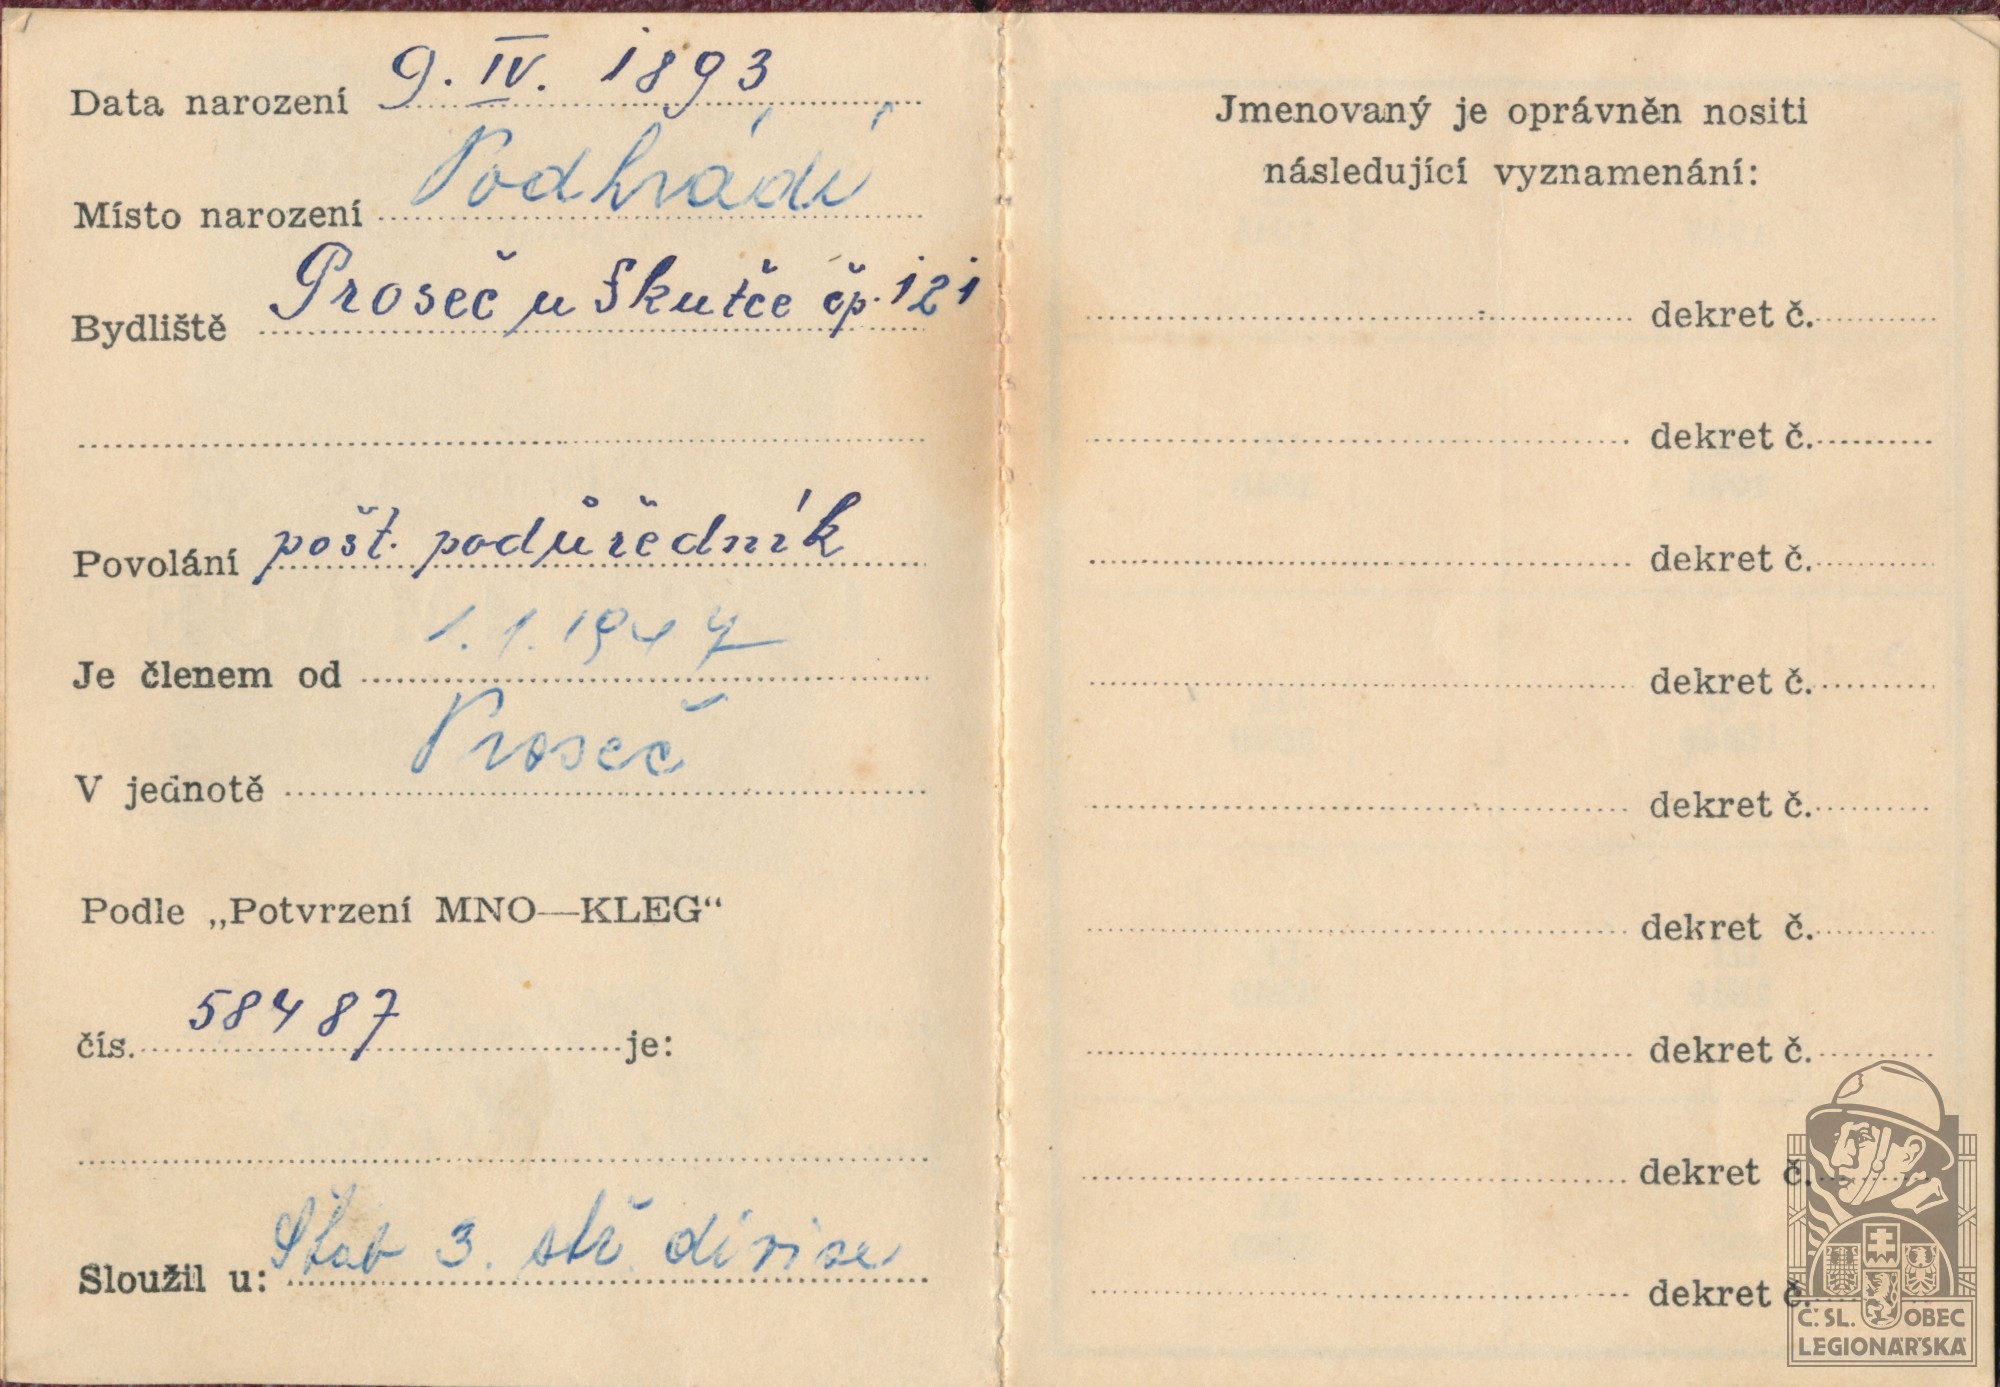 Data narození 9. IV. 1893
Místo narození Podhrádí
Bydliště Proseč u Skutče čp. 121
Povolání pošt. podůředník
Je členem od 1.1.1947
V jednotě Proseč
Podle „Potvrzení MNO—KLEG“
čís. 58487 je:
Sloužil u: Štab 3. stř. divise
Jmenovaný je oprávněn nositi
následující vyznamenání:
dekret č.
dekret č.
dekret č.
dekret č.
dekret č.
dekret č.
dekret č.
dekret č.
dekret č.
Č. SL. OBEC
LEGIONÁŘSKÁ